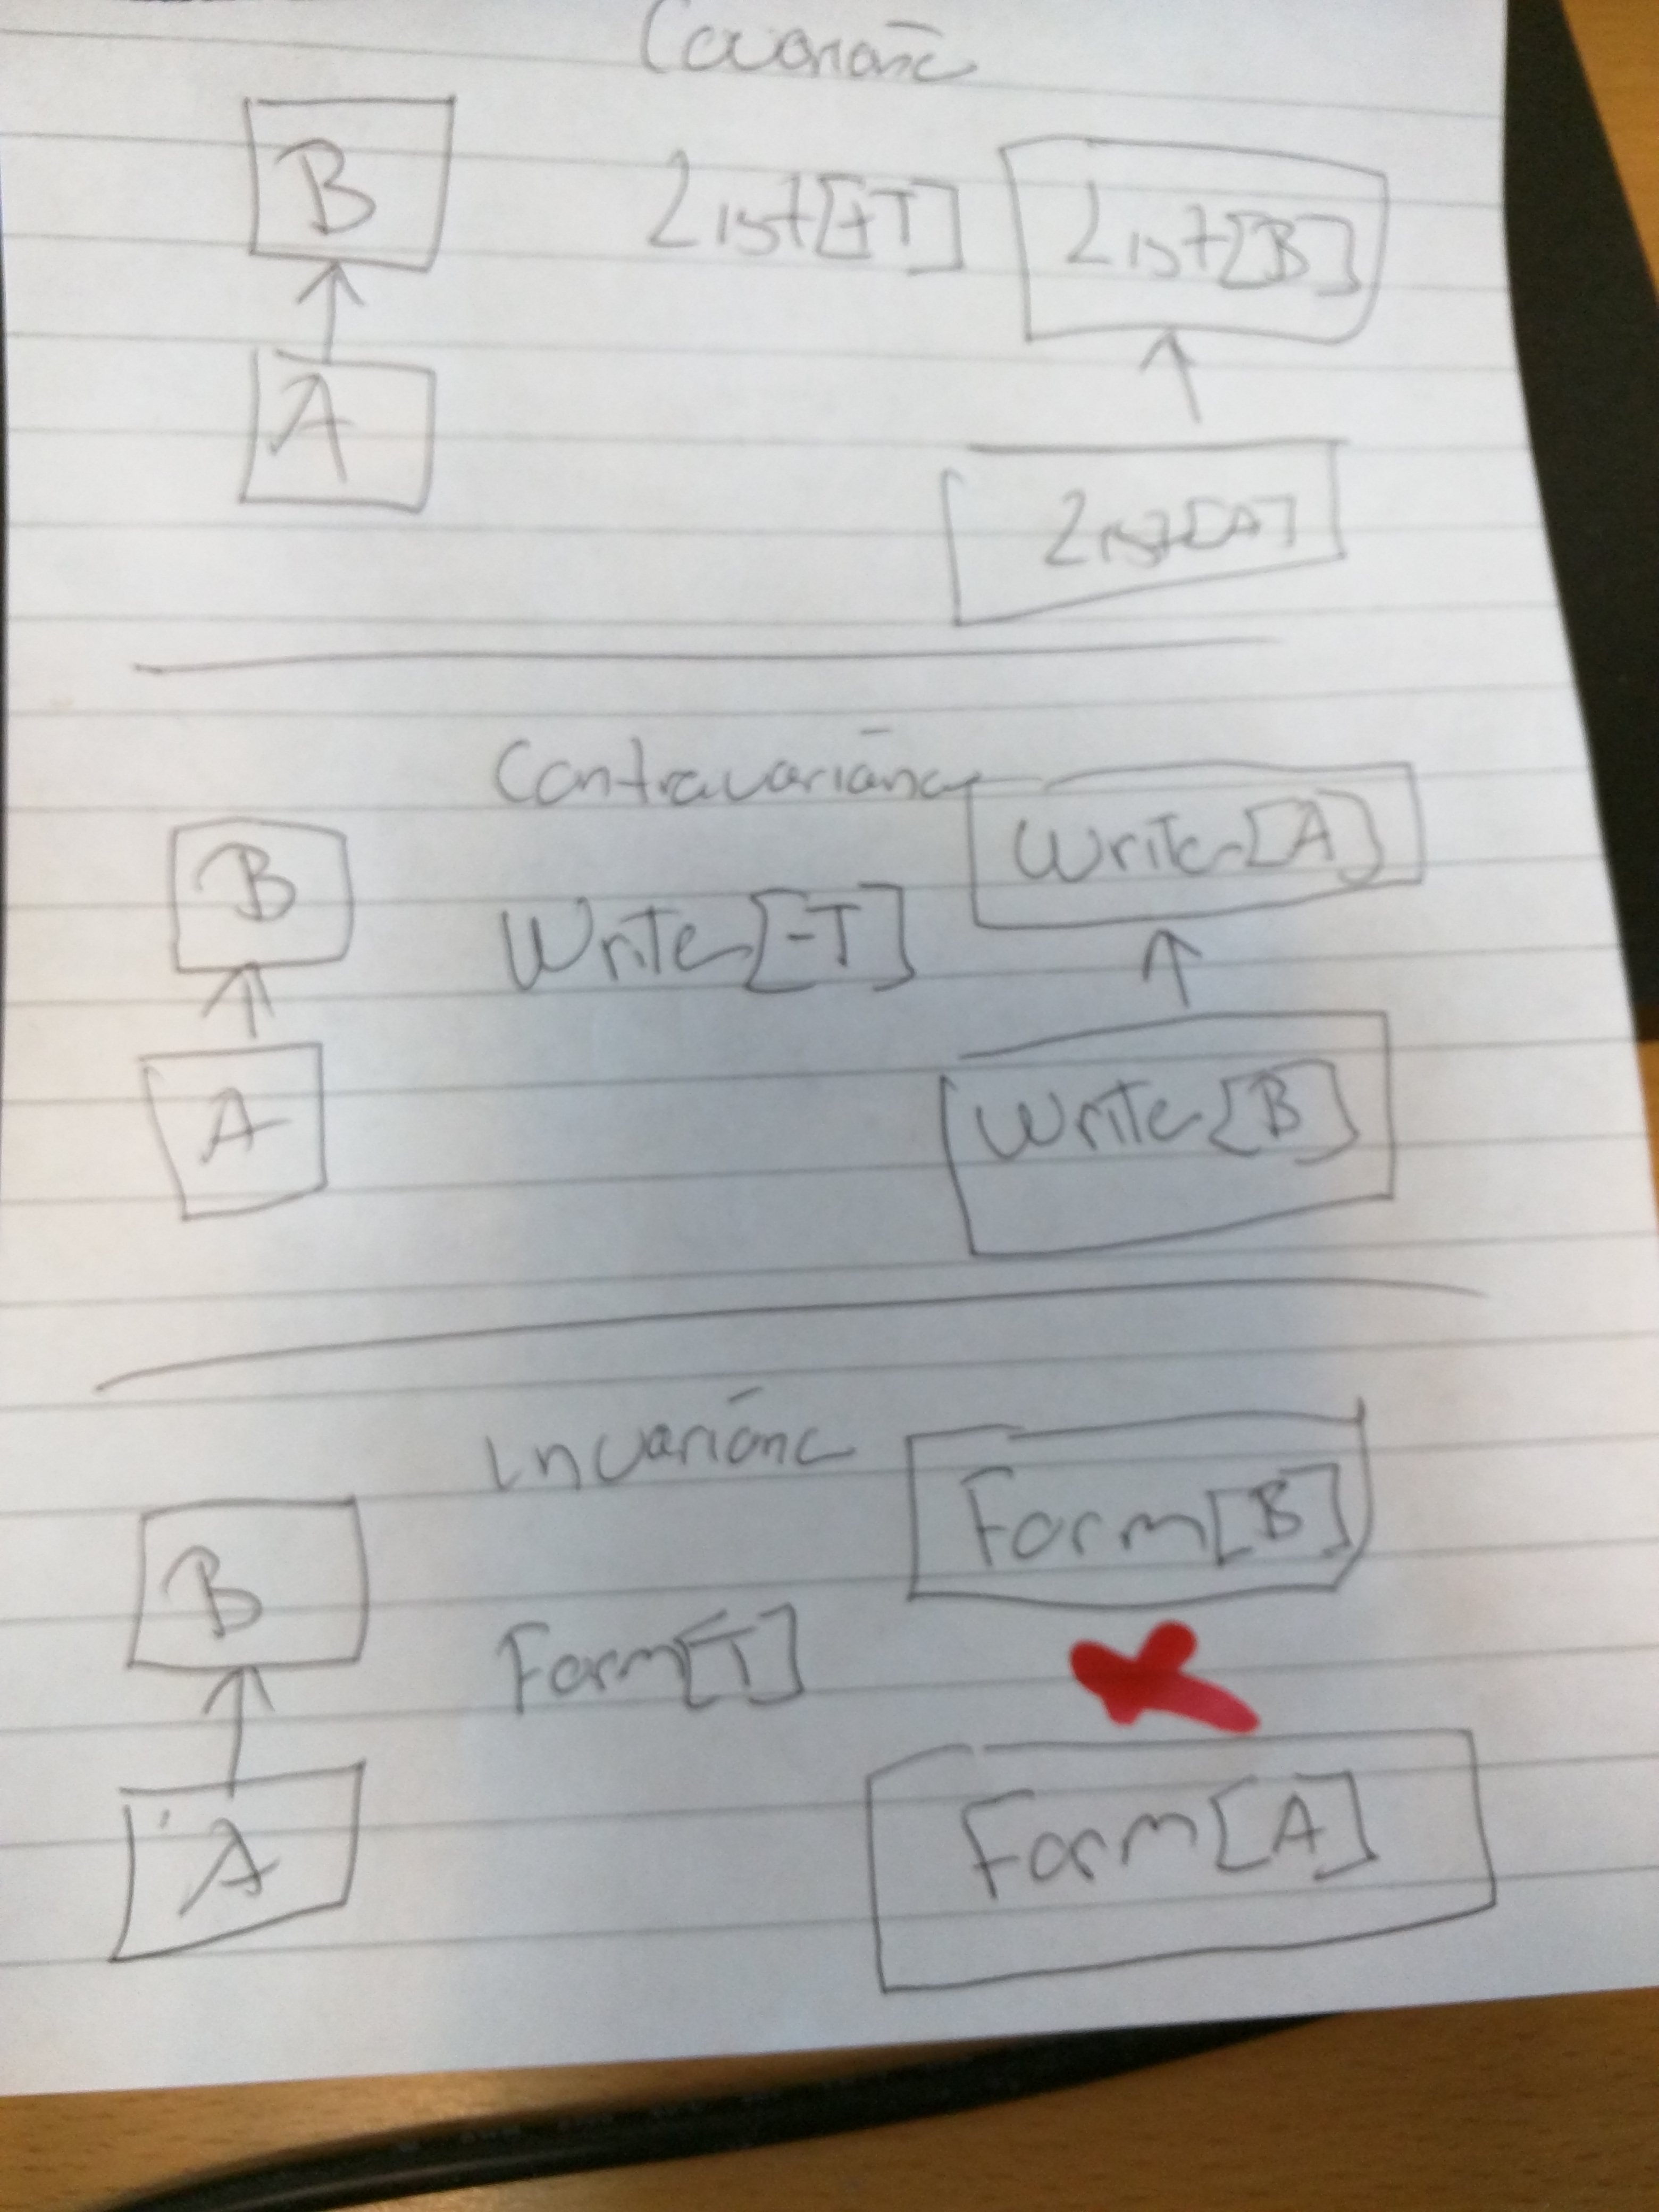 Covariance
B
List[+T]
List[B]
A
List[A]
Contravariance
B
Writer[-T]
Writer[A]
A
Writer[B]
Invariance
B
Form[T]
Form[B]
A
Form[A]